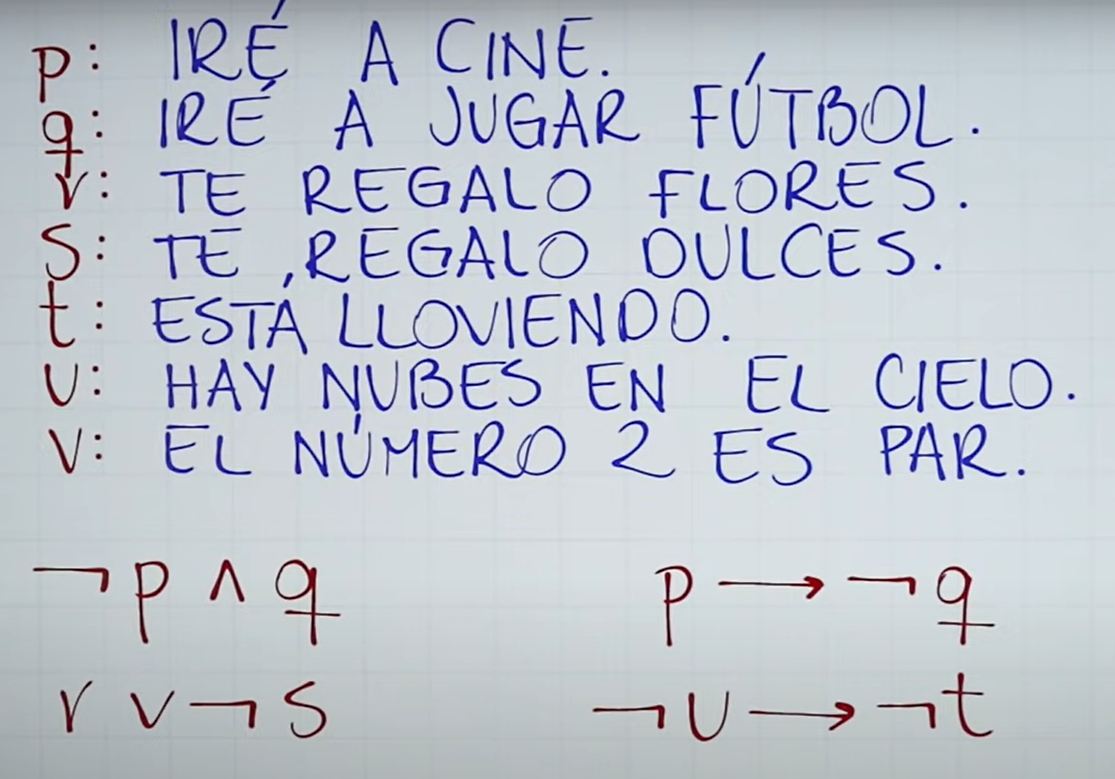 p: IRÉ A CINE.
q: IRÉ A JUGAR FÚTBOL.
r: TE REGALO FLORES.
S: TE REGALO DULCES.
t: ESTÁ LLOVIENDO.
U: HAY NUBES EN EL CIELO.
V: EL NÚMERO 2 ES PAR.
¬p ∧ q p → ¬q
r ∨ ¬S ¬U → ¬t